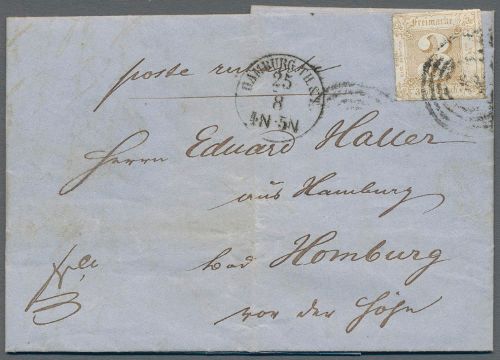 Freimarke
3
poste
HAMBURG TH. & T.
25
8
4N-5N
Herrn Eduard Haller
aus Hamburg
bad Homburg
vor der Höhe